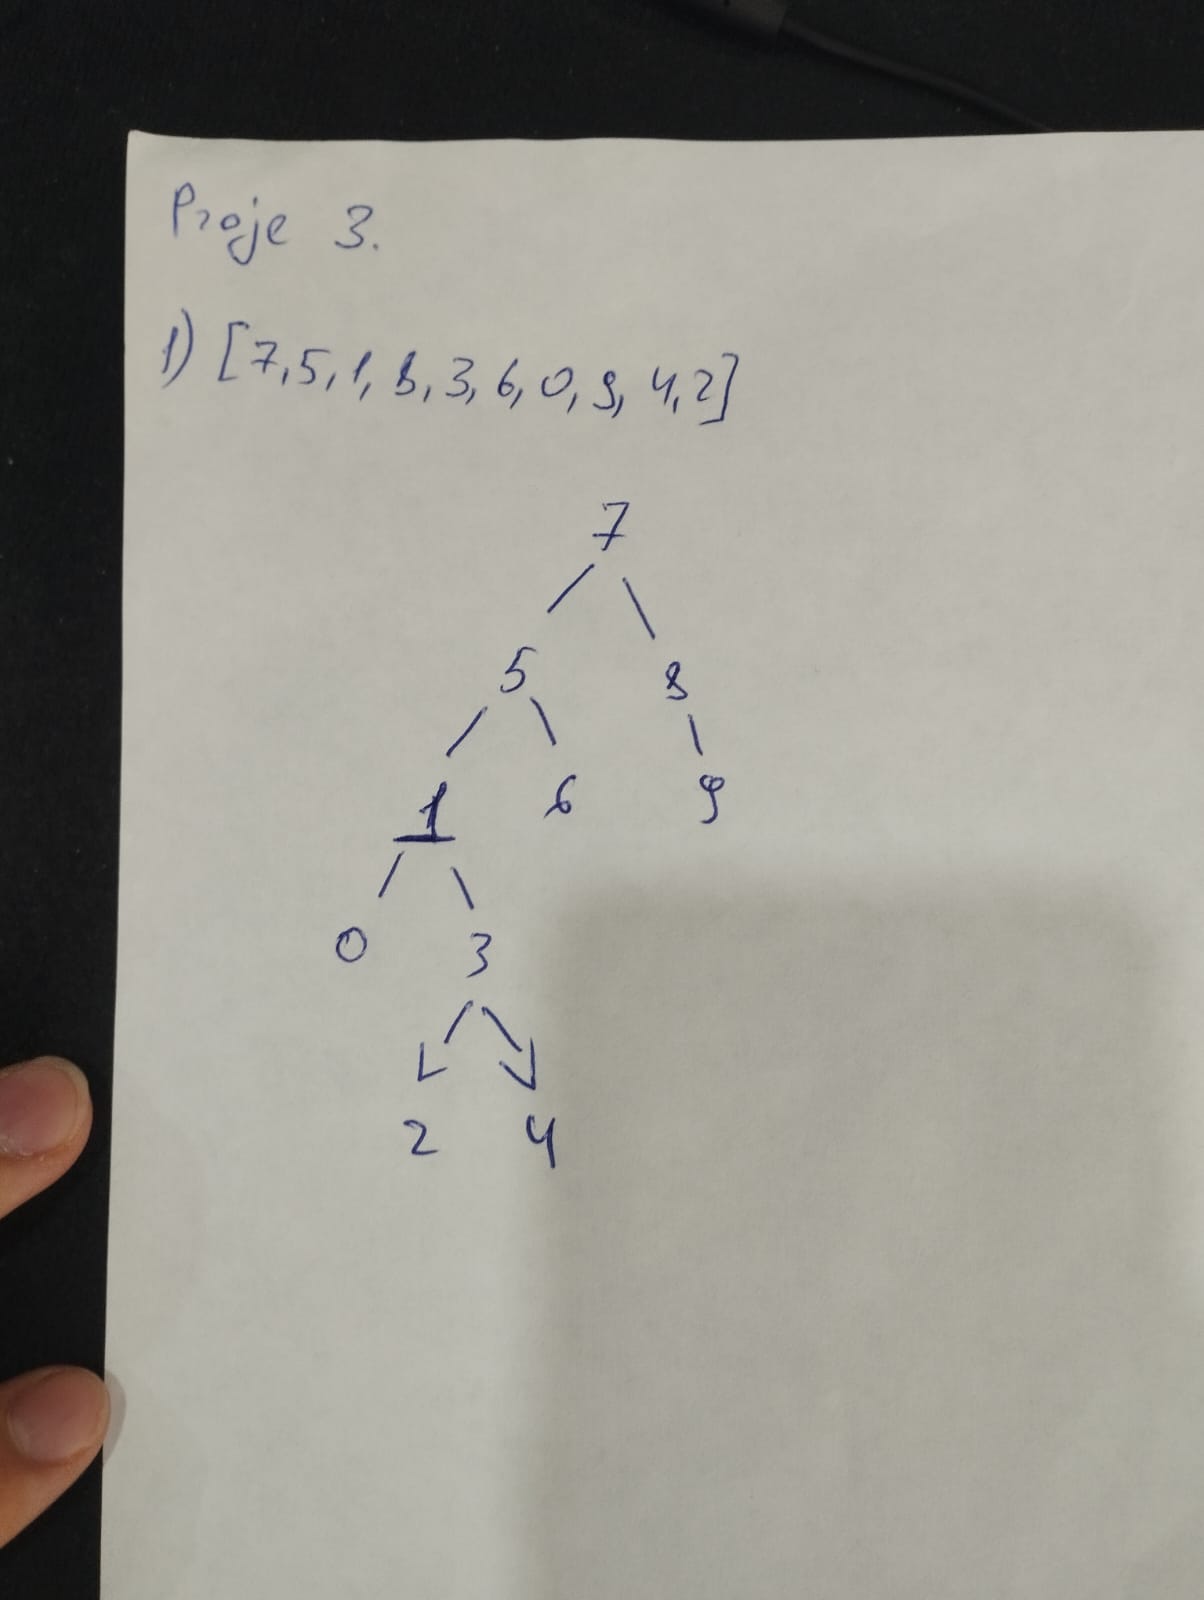 Proje 3.
1) [7,5,1,8,3,6,0,9,4,2]
7
5 8
1 6 9
0 3
2 4